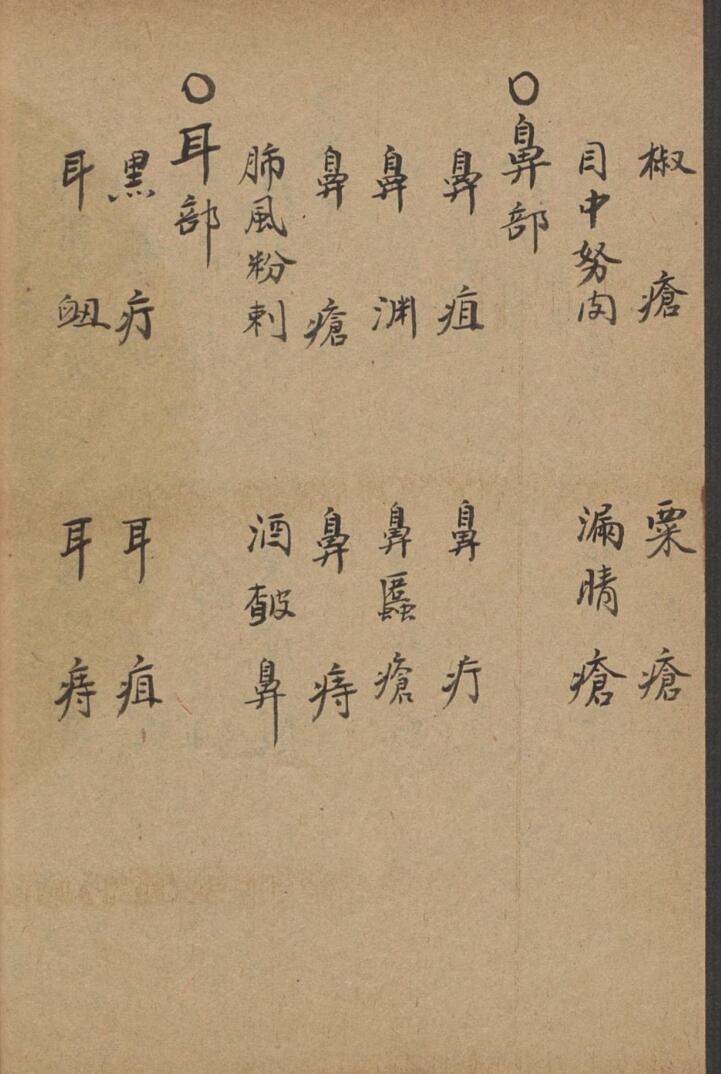 椒瘡　粟瘡
目中努肉　漏睛瘡
○鼻部
鼻疽　鼻疔
鼻淵　鼻䘌瘡
鼻瘡　鼻痔
肺風粉刺　酒皶鼻
○耳部
黑疔　耳疽
耳衄　耳痔